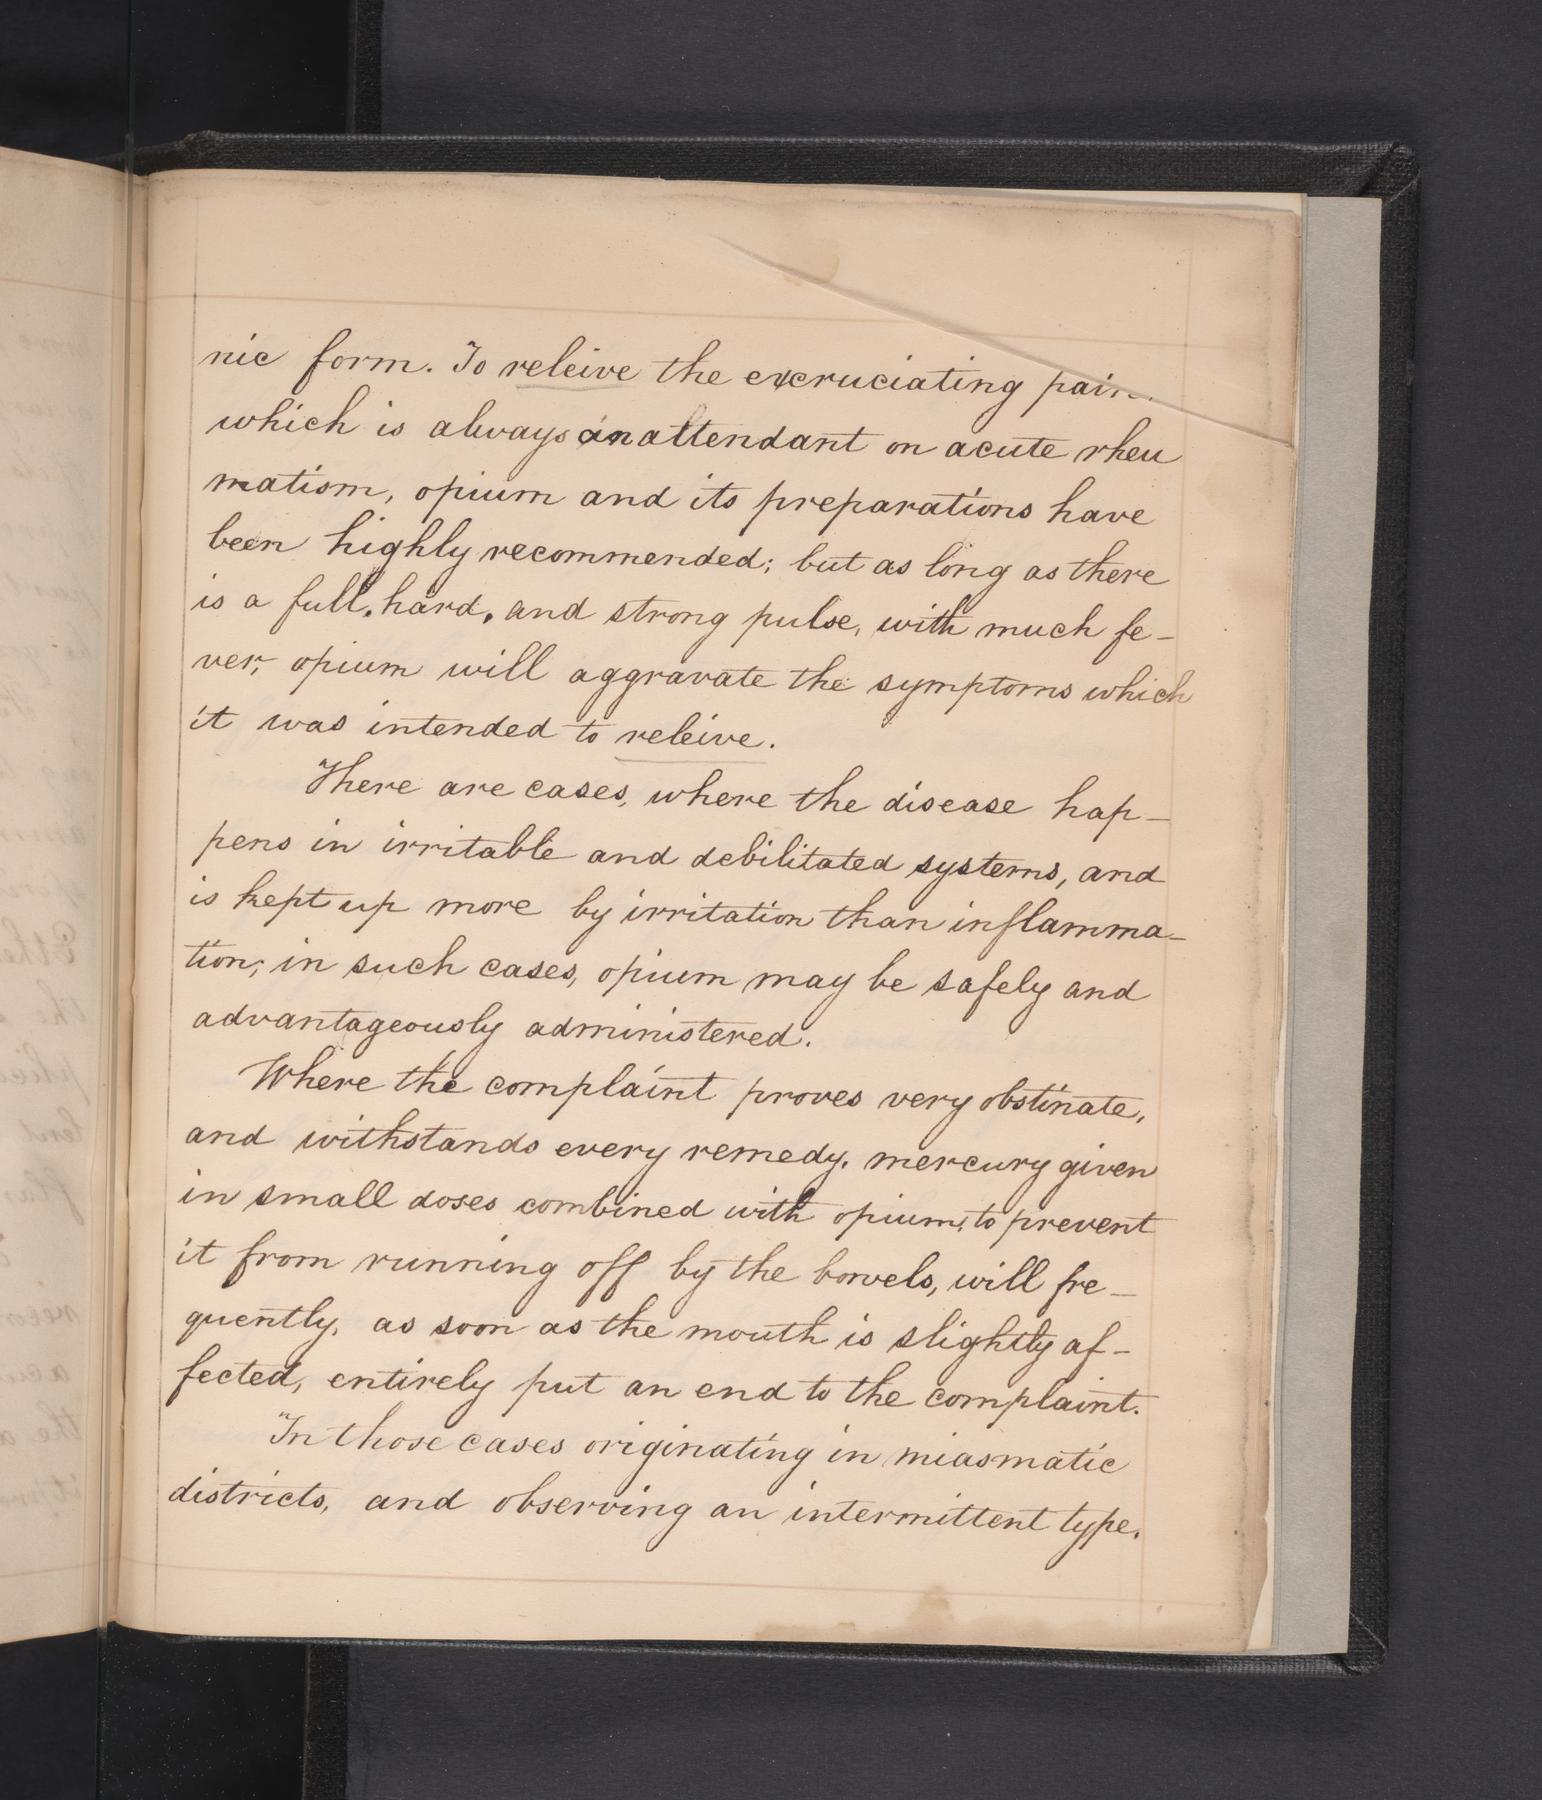 nic form. To releive the excruciating pain
which is always an attendant on acute rheu
matism, opium and its preparations have
been highly recommended; but as long as there
is a full, hard, and strong pulse, with much fe-
ver, opium will aggravate the symptoms which
it was intended to releive.
There are cases, where the disease hap-
pens in irritable and debilitated systems, and
is kept up more by irritation than inflamma-
tion; in such cases, opium may be safely and
advantageously administered.
Where the complaint proves very obstinate,
and withstands every remedy, mercury given
in small doses combined with opium, to prevent
it from running off by the bowels, will fre-
quently, as soon as the mouth is slightly af-
fected, entirely put an end to the complaint.
In those cases originating in miasmatic
districts, and observing an intermittent type,